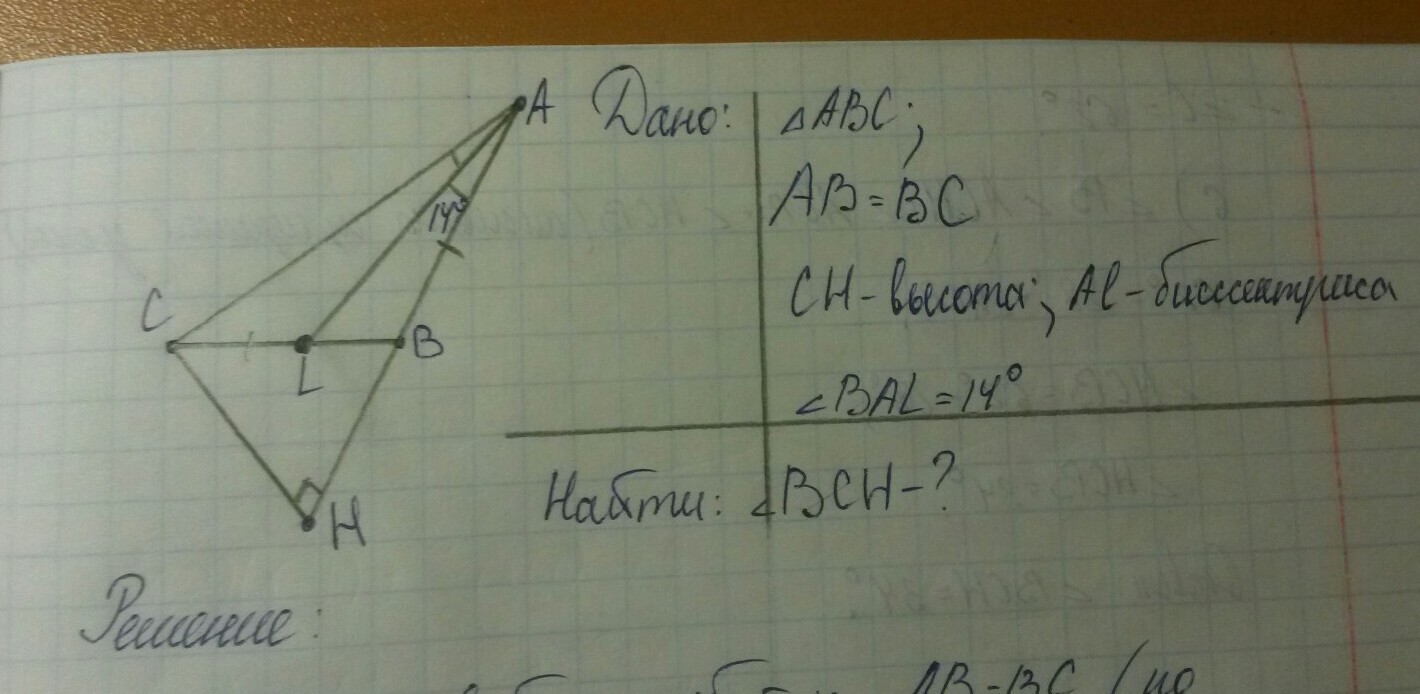 A Дано: △ABC;
14°
AB=BC
C
CH-высота; Al-биссектриса
B
L
∠BAL=14°
H
Найти: ∠BCH-?
Решение:
AB=BC (по